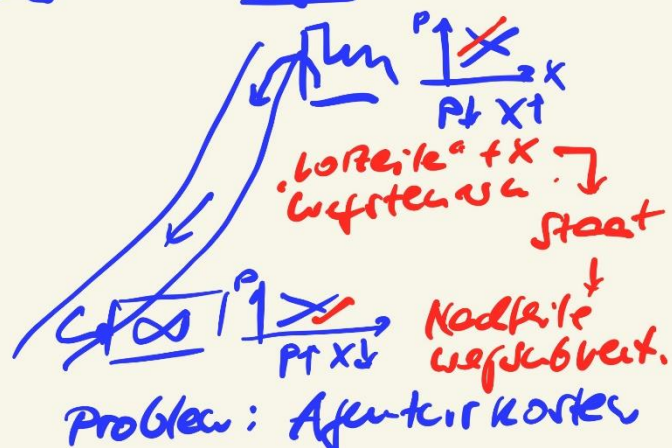 P
X
P↓ X↑
"Vorteile" + X
wegsteuern
Staat
P
P↑ X↓
Nachteile
Problem: Agenturkosten